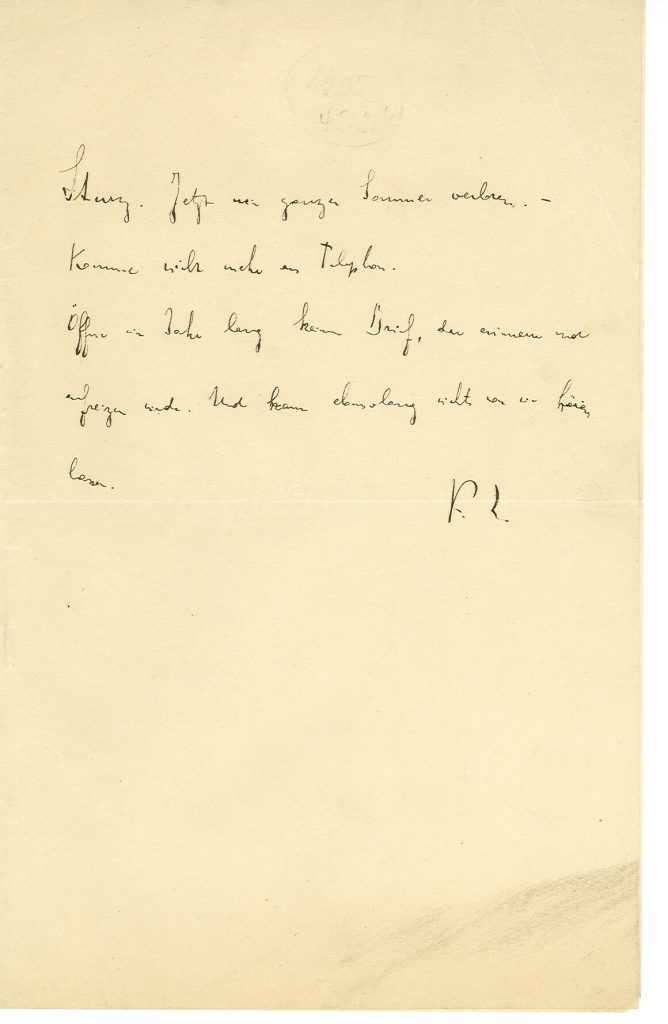 Sturz. Jetzt mein ganzer Sommer verloren. –
Komme nicht mehr ans Telephon.
Öffne ein Jahr lang keinen Brief, der erinnern und
aufreizen würde. Und kann ebensolang nichts von mir hören
lassen.
K. L.